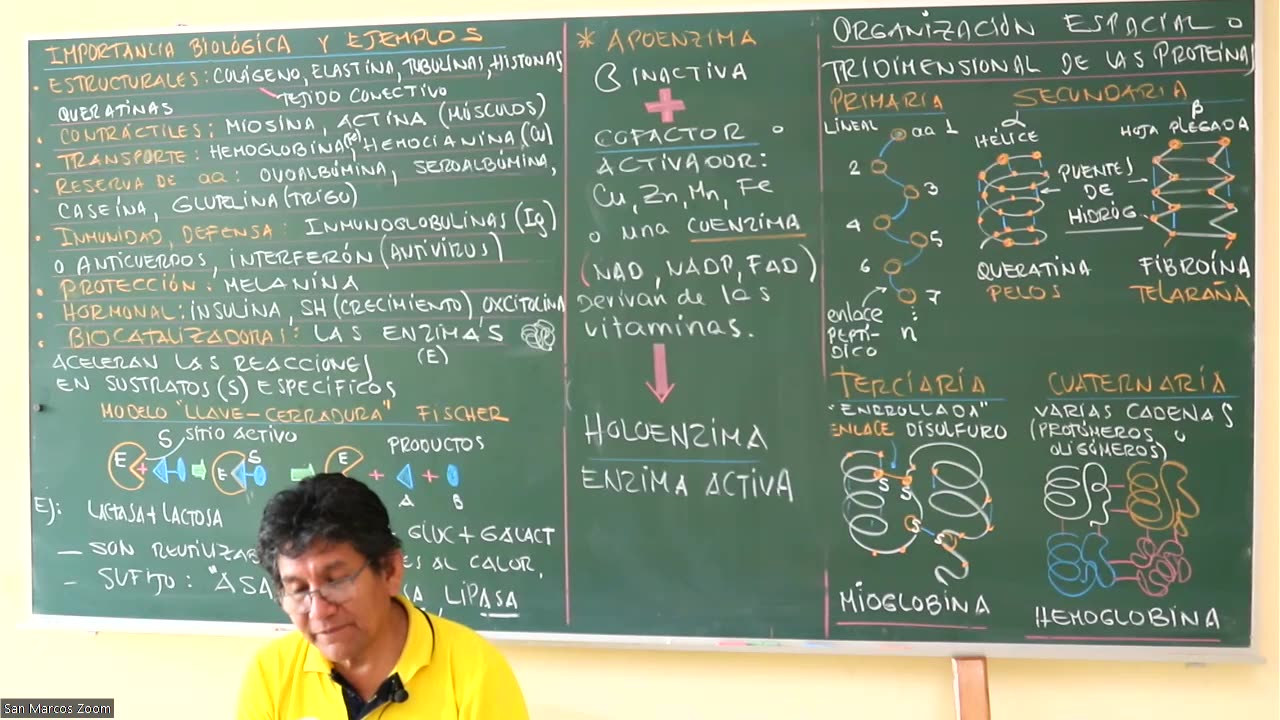 IMPORTANCIA BIOLÓGICA Y EJEMPLOS
• ESTRUCTURALES: COLÁGENO, ELASTINA, TUBULINAS, HISTONAS
QUERATINAS
TEJIDO CONECTIVO
• CONTRÁCTILES: MIOSINA, ACTINA (MÚSCULOS)
• TRANSPORTE: HEMOGLOBINA(Fe), HEMOCIANINA(Cu)
• RESERVA DE aa: OVOALBÚMINA, SEROALBÚMINA,
CASEÍNA, GLUTELINA(TRIGO)
• INMUNIDAD, DEFENSA: INMUNOGLOBULINAS (Ig)
O ANTICUERPOS, INTERFERÓN (ANTIVIRUS)
• PROTECCIÓN: MELANINA
• HORMONAL: INSULINA, SH (CRECIMIENTO) OXCITOCINA
• BIOCATALIZADORAS: LAS ENZIMAS
(E)
ACELERAN LAS REACCIONES
EN SUSTRATOS (S) ESPECÍFICOS
MODELO "LLAVE-CERRADURA" FISCHER
S SITIO ACTIVO
PRODUCTOS
E + E S E + A + B
Ej: LACTASA + LACTOSA
GLUC + GALACT
— SON
ES AL CALOR,
— SUFIJO: "ASA
LIPASA
* APOENZIMA
INACTIVA
+
COFACTOR O
ACTIVADOR:
Cu, Zn, Mn, Fe
o una COENZIMA
(NAD, NADP, FAD)
Derivan de las
vitaminas.
HOLOENZIMA
ENZIMA ACTIVA
ORGANIZACIÓN ESPACIAL O
TRIDIMENSIONAL DE LAS PROTEÍNAS
PRIMARIA
LINEAL
aa 1
2
3
4
5
6
7
n
enlace
PEPTÍ-
DICO
SECUNDARIA
α
HÉLICE
β
HOJA PLEGADA
PUENTES
DE
HIDRÓG
QUERATINA
PELOS
FIBROÍNA
TELARAÑA
TERCIARIA
"ENROLLADA"
ENLACE DISULFURO
S S
S S
MIOGLOBINA
CUATERNARIA
VARIAS CADENAS
(PROTÓMEROS U
OLIGÓMEROS)
HEMOGLOBINA
San Marcos Zoom